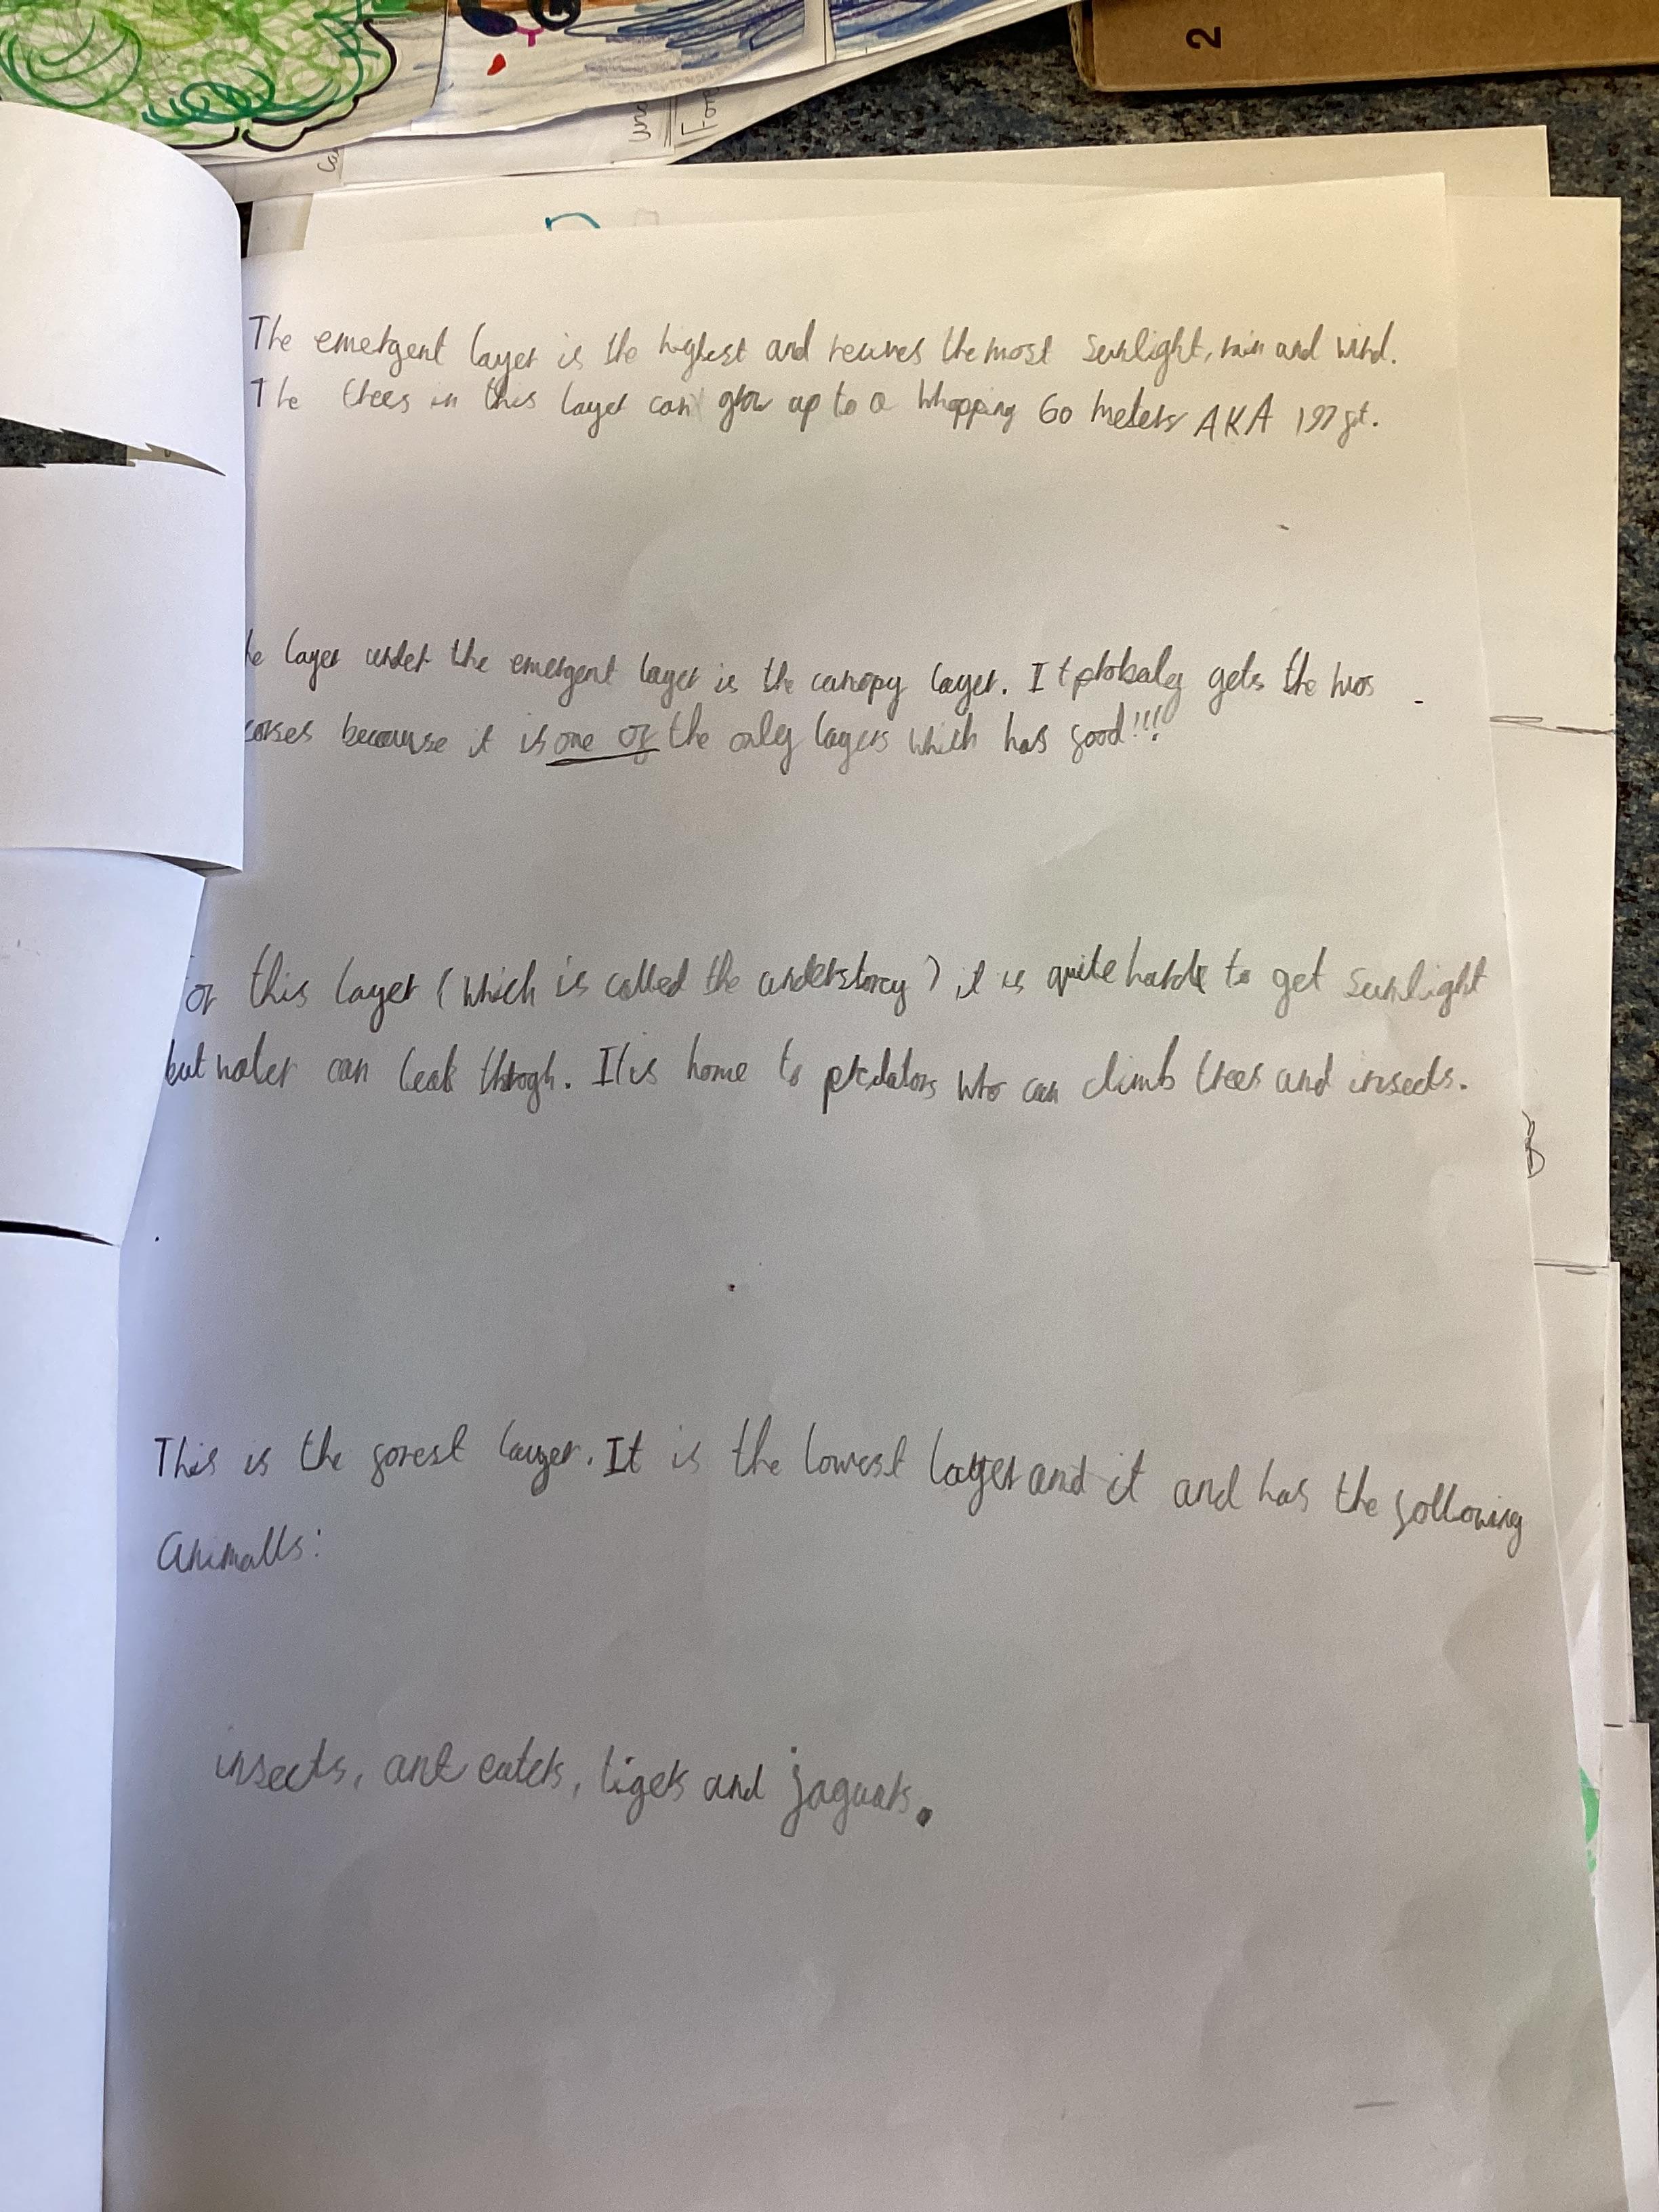 2
The emergent layer is the highest and recives the most sunlight, rain and wind.
The trees in this layer can grow up to a whopping 60 meters AKA 197 ft.
layer under the emergent layer is the canopy layer. It probaley gets the
because it is one of the only layers which has food!!!
For this layer (which is called the understorey) it is quite hard to get sunlight
but water can leak throgh. It is home to predators who can climb trees and insects.
This is the forest layer. It is the lowest layer and it and has the following
animalls:
insects, ant eaters, tigers and jaguars.